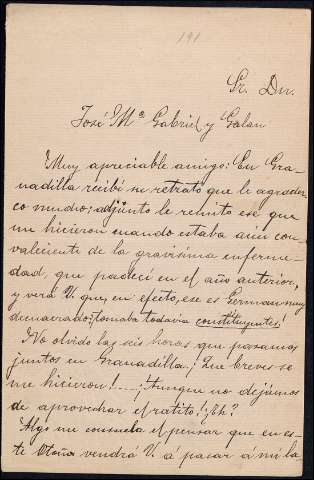 191
Sr. Dn.
José Mª Gabriel y Galan
Muy apreciable amigo: En Gra-
nadilla recibí su retrato que le agradez-
co mucho; adjunto le remito ese que
me hicieron cuando estaba aún con-
valeciente de la gravísima enferme-
dad, que padecí en el año anterior,
y verá V. que, en efecto, ese es German muy
desmejorado; ¡tomaba todavía constituyentes!
¡No olvido las seis horas que pasamos
juntos en Granadilla; ¡Que breves se
me hicieron!...; ¡Aunque no dejamos
de aprovechar el ratito! ¿Eh?
Algo me consuela el pensar que en es-
te Otoño vendrá V. á pasar á mi la-